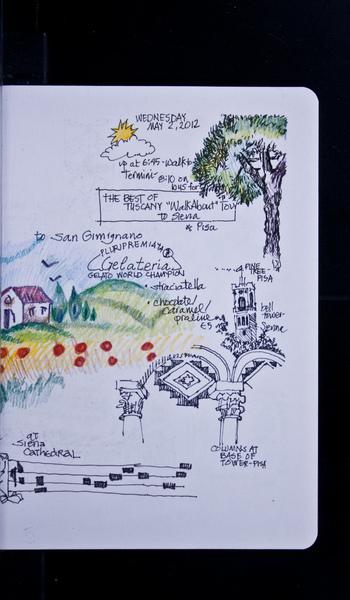 WEDNESDAY
MAY 2, 2012
up at 6:45 - walk to
Termini
8:10 on
bus for
THE BEST OF
TUSCANY "WalkAbout" Tour
to Siena
& Pisa
to San Gimignano
PLURIPREMIATA
Gelateria
GELATO WORLD CHAMPION
• straciatella
• chocolate/
caramel/
praline
€5
PINE
TREE -
PISA
bell
tower -
Siena
COLUMNS AT
BASE OF
TOWER - PISA
at
Siena
CATHEDRAL